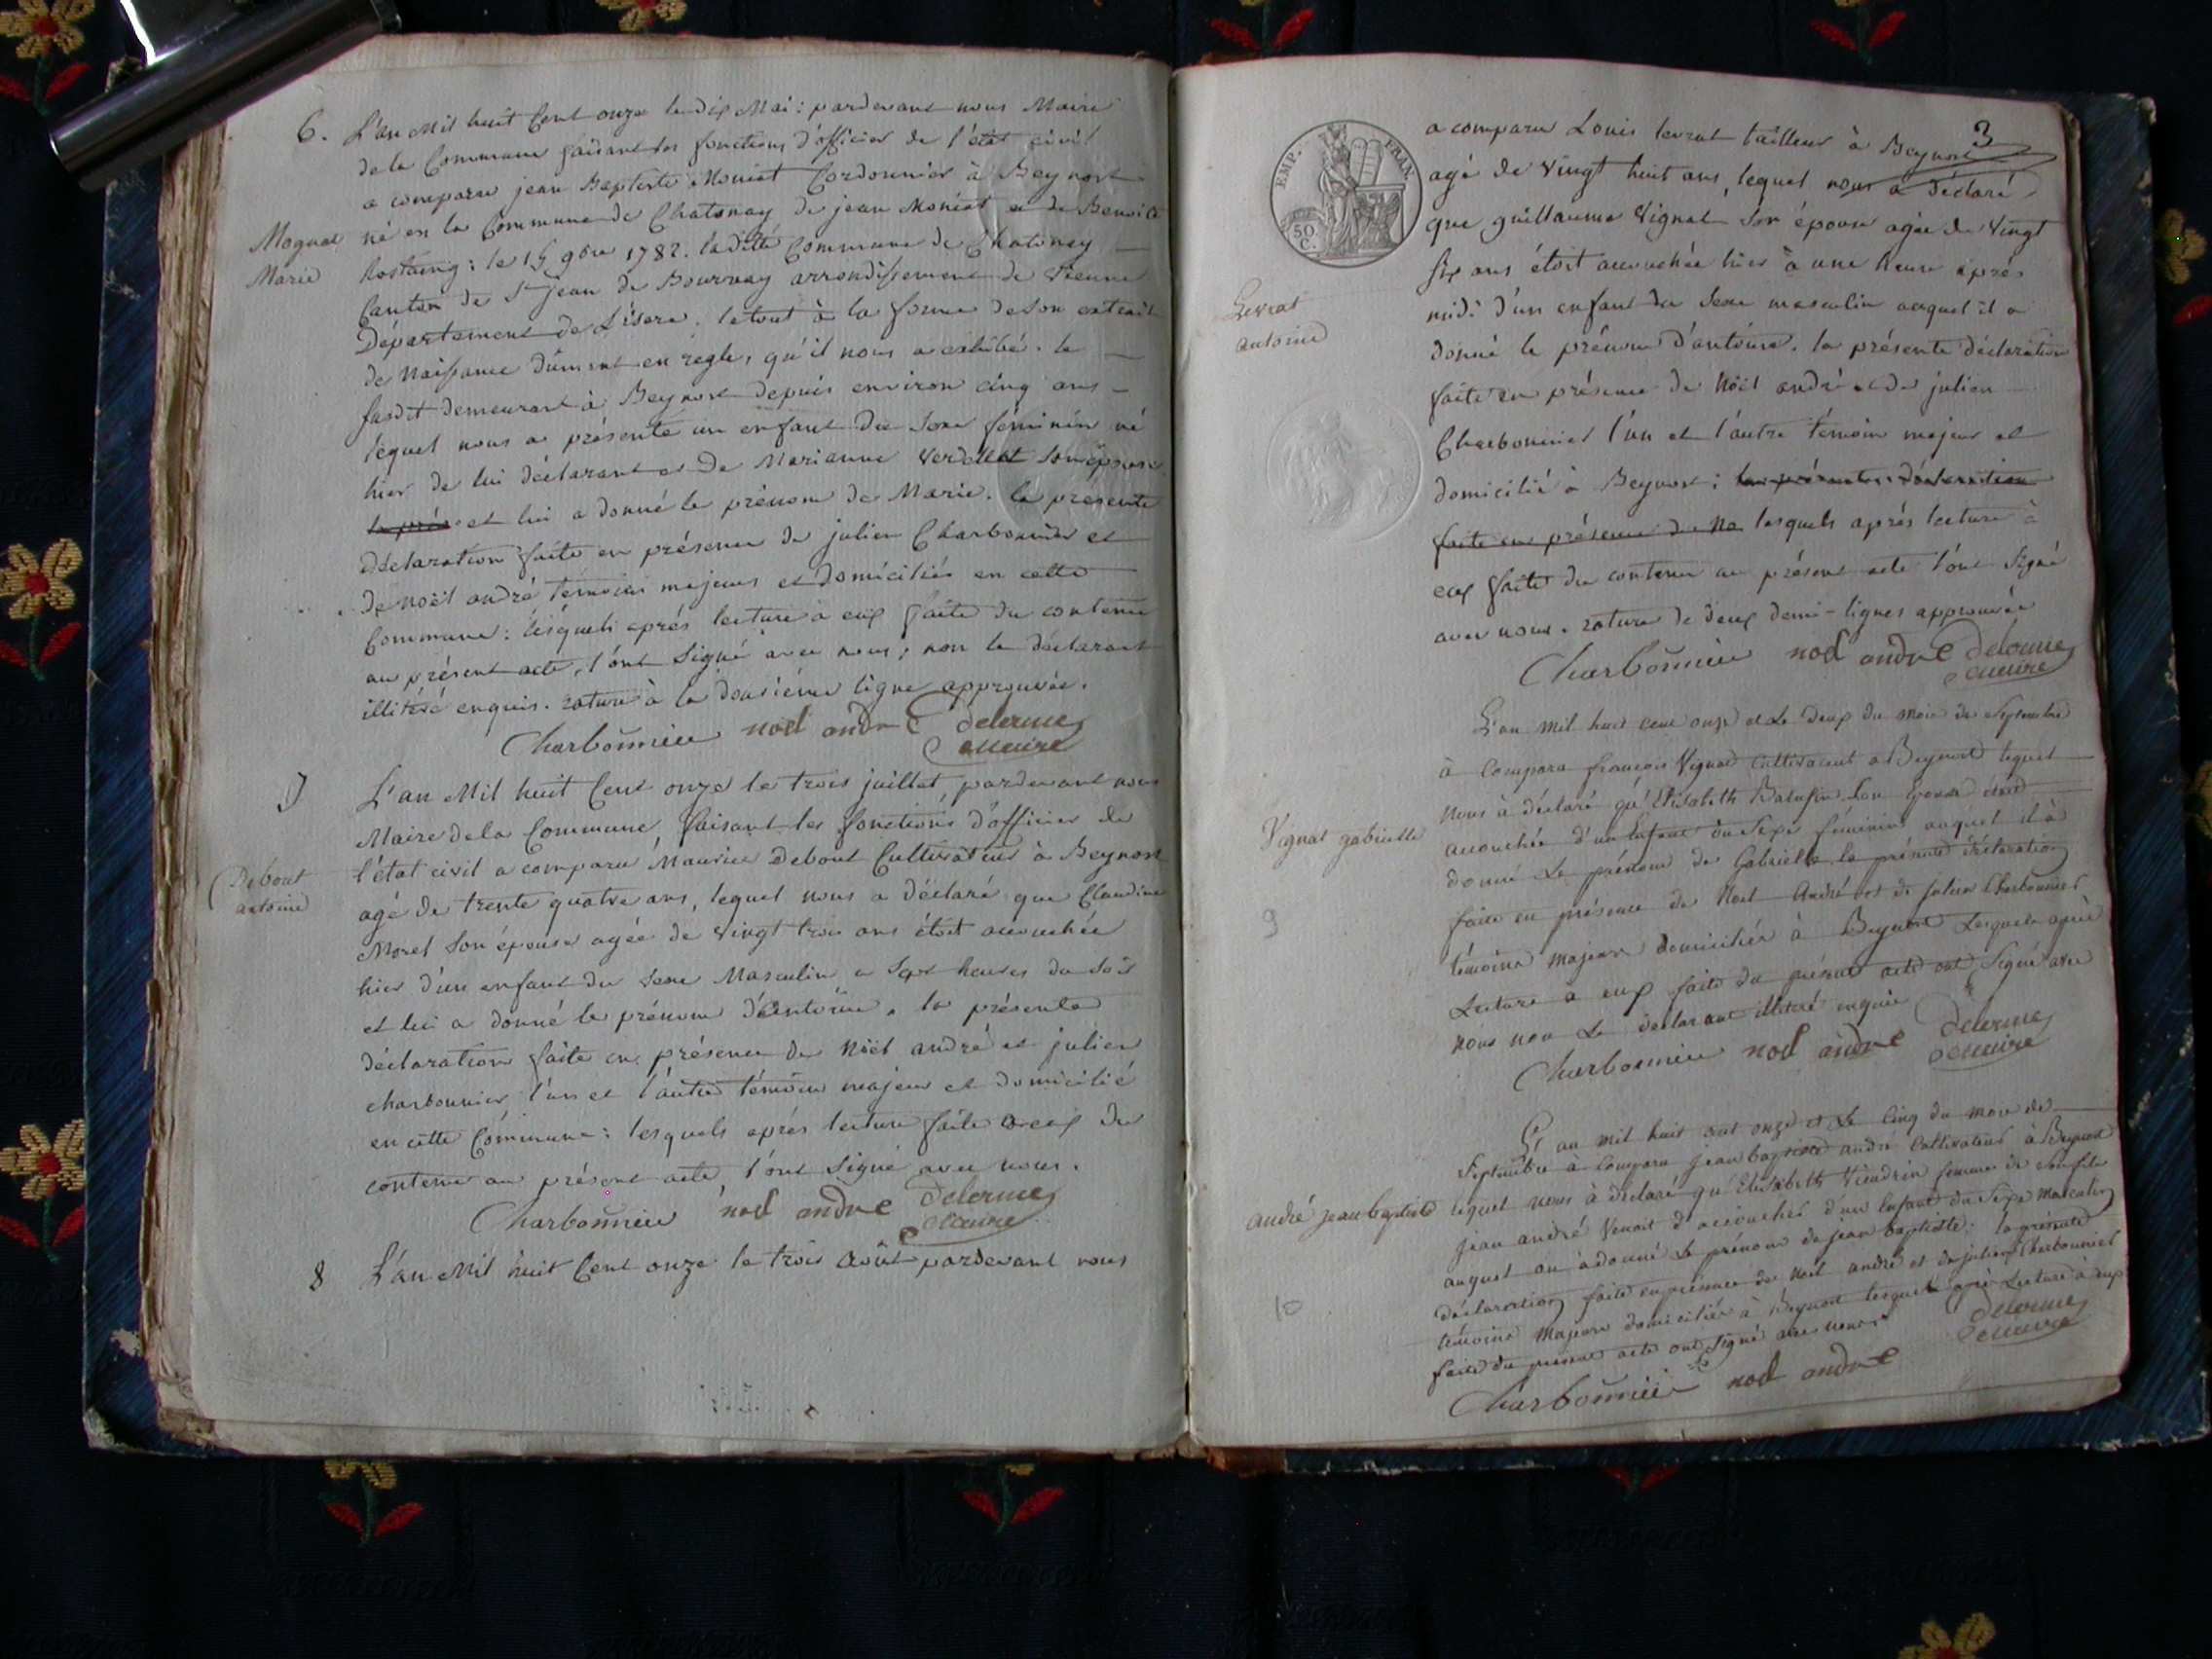 6. L'an Mil huit Cent onze le dix Mai : pardevant nous Maire
de la Commune faisant les fonctions d'officier de l'état civil
a comparu jean Baptiste Moniat Cordonnier à Beynost
né en la Commune de Chatonay de jean Moniat et de Benoite
Marie
Rostaing : le 15 9bre 1782. laditte Commune de Chatonay
Canton de St jean de Bournay arrondissement de Vienne
Département de L'isere. le tout à la forme de son extrait
de Naissance dûment en regles, qu'il nous a exhibé. le
susdit demeurant à Beynost depuis environ cinq ans
lequel nous a présenté un enfant du sexe féminin né
hier de lui déclarant et de Marianne son épouse
et lui a donné le prénom de Marie. la presente
déclaration faite en présence de julien Charbonnier et
de noël andré témoins majeurs et domiciliés en cette
Commune : lesquels après lecture à eux faite du contenu
au présent acte, l'ont signé avec nous ; non le déclarant
illitéré enquis. rature à la douzième ligne approuvée.
Charbonnier noel andre Delorme
maire
7 L'an Mil huit Cent onze le trois juillet, pardevant nous
Maire de la Commune, faisant les fonctions d'officier de
l'état civil a comparu Maurice Debout Cultivateur à Beynost
Debout
antoine
agé de trente quatre ans, lequel nous a déclaré que Claudine
Morel son épouse agée de vingt trois ans étoit accouchée
hier d'un enfant du sexe Masculin a sept heures du soir
et lui a donné le prénom d'antoine. la présente
déclaration faite en présence de Noël andré et julien
charbonnier l'un et l'autre témoin majeur et domicilié
en cette Commune : lesquels après lecture faite a eux du
contenu au présent acte, l'ont signé avec nous.
Charbonnier noel andre Delorme
maire
8 L'an Mil huit Cent onze le trois Août pardevant nous
3
EMP. FRAN.
50
C.
a comparu Louis levrat tailleur à Beynost
agé de vingt huit ans, lequel nous a déclaré
que guillaume Vignat son épouse agée de vingt
six ans étoit accouchée hier à une heure après
Levrat
antoine
midi d'un enfant du sexe masculin auquel il a
donné le prénom d'antoine. la présente déclaration
faite en présence de Noël andré et de julien
Charbonnier l'un et l'autre témoin majeur et
domicilié à Beynost ; la présente déclaration
faite en présence de No lesquels après lecture à
eux faite du contenu au présent acte l'ont signé
avec nous. rature de deux demi-lignes approuvée
Charbonnier noel andre Delorme
maire
L'an mil huit cent onze et Le deux du mois de Septembre
à Comparu françois Vignat Cultivateur a Beynost lequel
Nous à déclaré qu'Elisabeth son Epouse étoit
Vignat gabrielle
accouchée d'un Enfant du Sexe féminin auquel il à
donné Le prénom de Gabrielle la présente déclaration
faite en présence de Noel André et de Julien Charbonnier
9
témoins majeurs domiciliés à Beynost Lesquels après
Lecture a eux faite du présent acte ont Signé avec
nous non Le déclarant illitéré enquis
Charbonnier noel andre Delorme
maire
L'an mil huit cent onze et Le Cinq du mois de
Septembre à Comparu Jean baptiste andré Cultivateur à Beynost
andré jean baptiste
lequel nous à déclaré qu'Elisabeth femme de Son fils
jean andré Venoit d'accoucher d'un Enfant du Sexe Masculin
auquel on à donné Le prénom de jean baptiste : la présente
déclaration faite en présence de Noel andré et de julien Charbonnier
10
témoins majeurs domiciliés à Beynost lesquels après Lecture à eux
faite du présent acte ont Signé avec nous
Charbonnier noel andre Delorme
maire